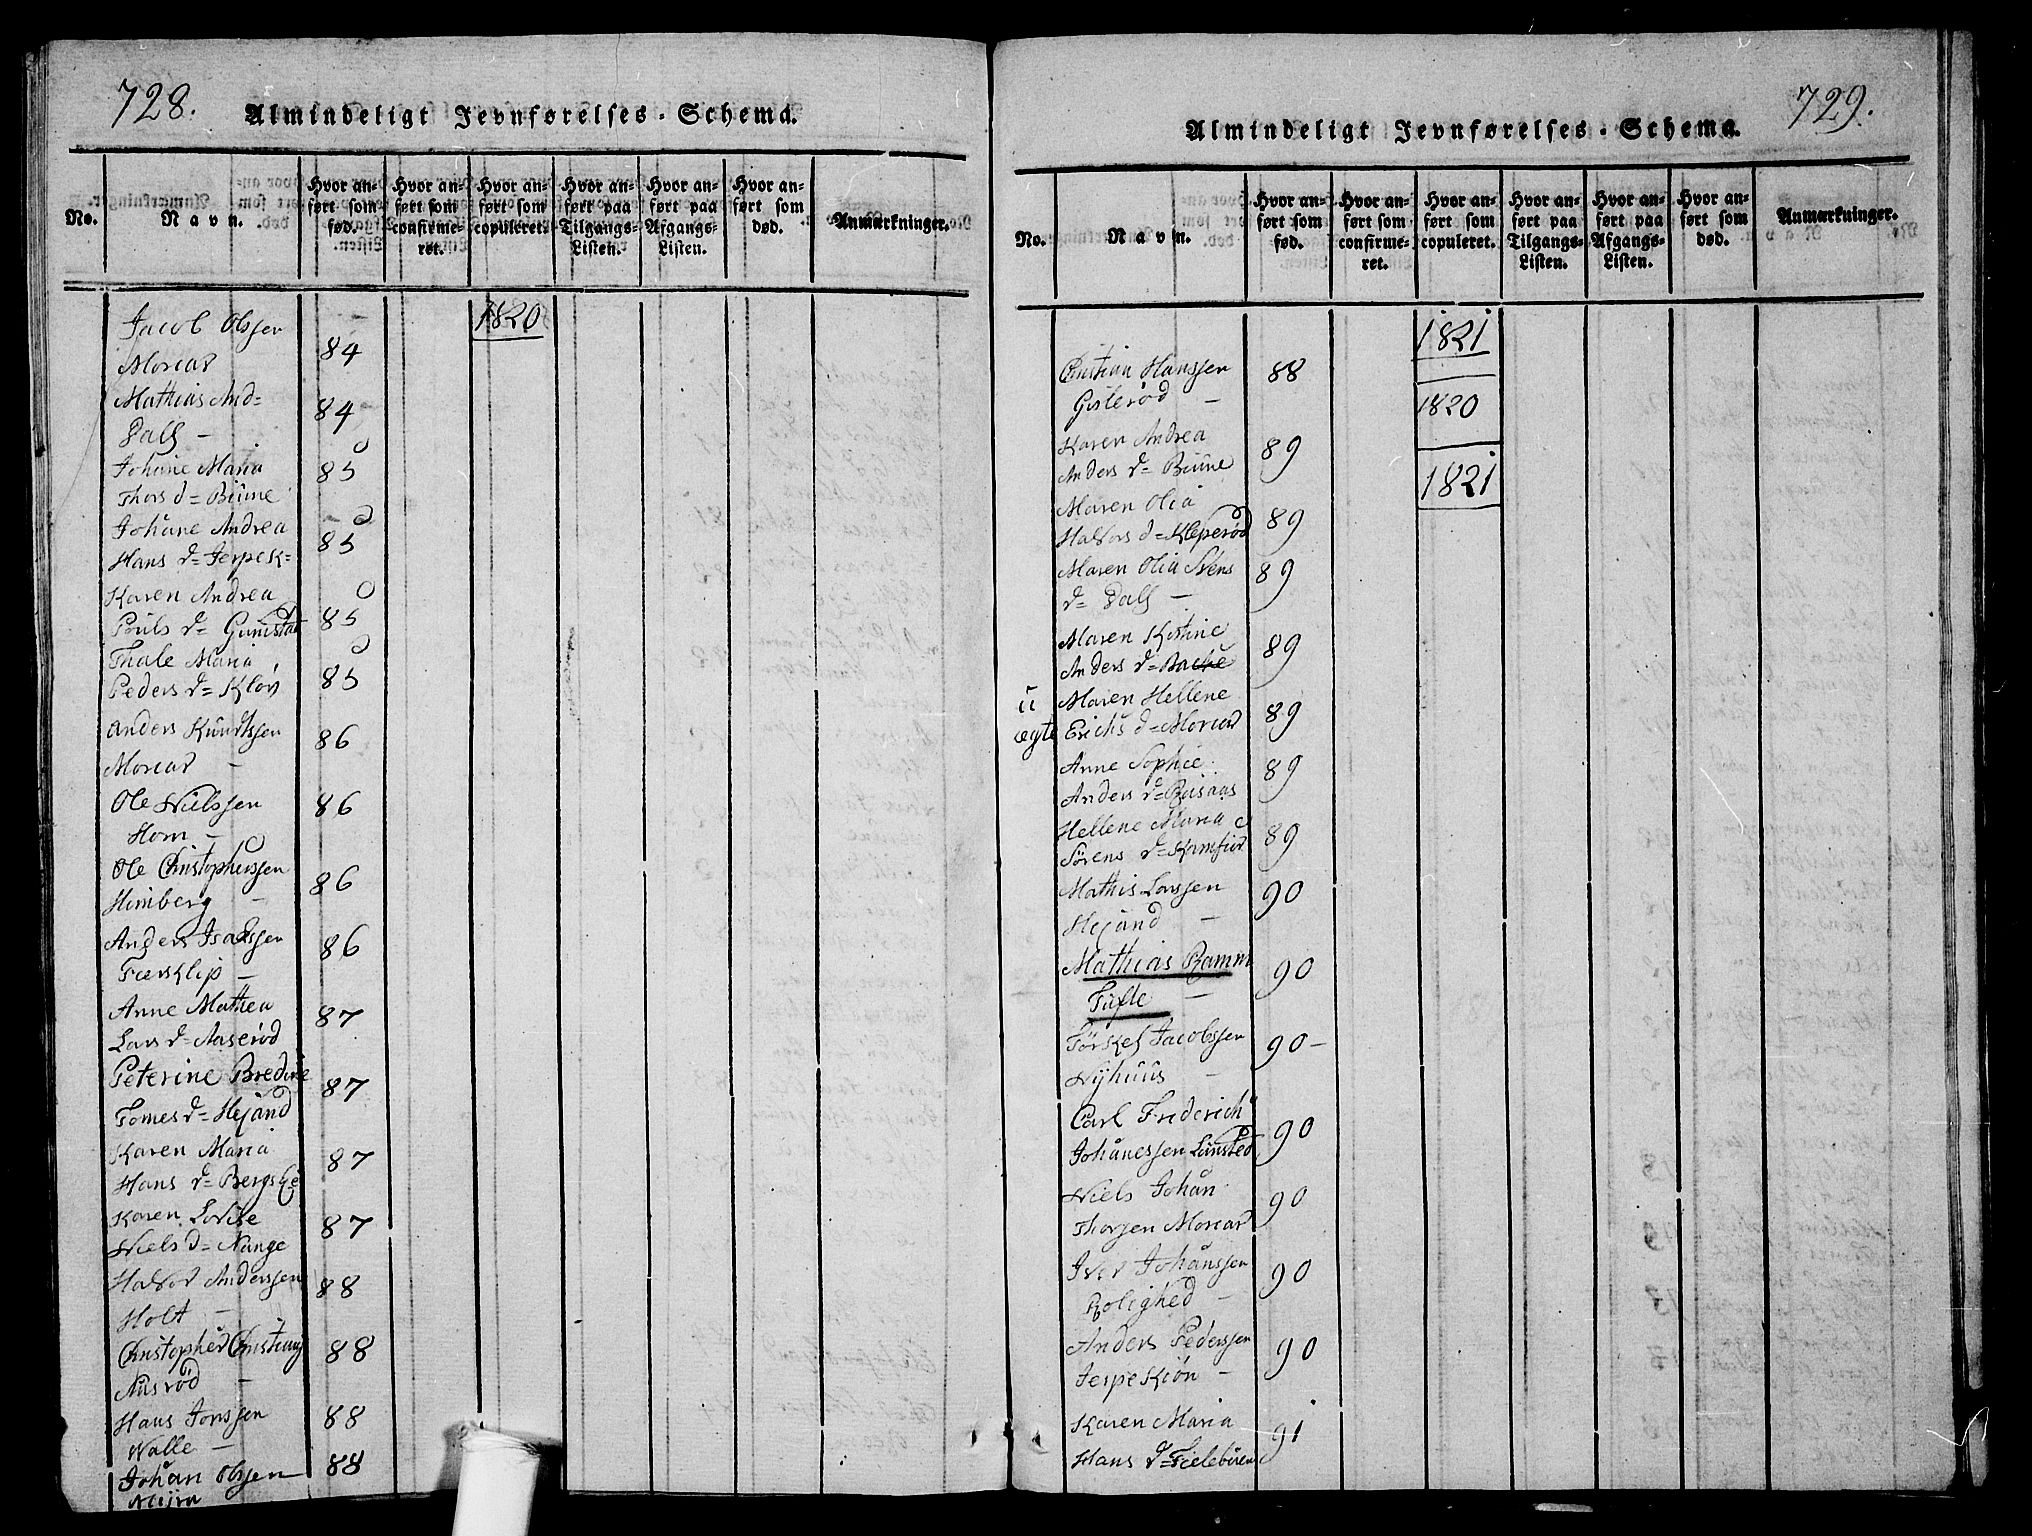 728.
Almindeligt Jevnførelses-Schema.
No.
Navn.
Hvor anført som fød.
Hvor anført som confirmeret.
Hvor anført som copuleret.
Hvor anført paa Tilgangs-Listen.
Hvor anført paa Afgangs-Listen.
Hvor anført som død.
Anmærkninger.
1820
Jacob Olssen
Morear 84
Mathias And=
Dals – 84
Johane Maria 85
Thors d= Brune
Johane Andrea
Hans d= Jerpek= 85
Karen Andrea
Pouls d= Gunestad 85
Thale Maria
Peders d= Kløv 85
Anders Knudssen 86
Morear –
Ole Nielssen 86
Horn –
Ole Christophersen
Himberg – 86
Anders Isakssen 86
Færklip –
Anne Mathea 87
Lars d= Aaserød
Peterine Bredine 87
Tomes d= Hejand
Karen Maria 87
Hans d= Bergske
Karen Lovise 87
Niels d= Nange
Halvor Anderssen 88
Holt –
Christopher Christians 88
Ausrød –
Hans Jonssen 88
Walle –
Johan Olssen 88
729.
Almindeligt Jevnførelses-Schema.
No.
Navn.
Hvor anført som fød.
Hvor anført som confirmeret.
Hvor anført som copuleret.
Hvor anført paa Tilgangs-Listen.
Hvor anført paa Afgangs-Listen.
Hvor anført som død.
Anmærkninger.
1821
Christian Hanssen 88
Gisterød – 1820
Karen Andrea 89
Anders d= Brune 1821
Maren Olia
Halvors d= Kleperød 89
Maren Olia Svens 89
d= Dals –
Maren Kistine 89
Anders d= Bache
u Maren Hellene
ægte Erichs d= Morear 89
Anne Sophie 89
Anders d= Rusaas
Hellene Maria 89
Sørens d= Kamfior
Mathis Larssen 90
Hejand –
Mathias Ramm 90
Tufte –
Torkel Jacobssen 90 –
Nyhuus –
Carl Friderich 90
Johanessen Lunsted
Niels Johan 90
Thorsen Morear
Iver Johanssen 90
Rolighed –
Anders Pederssen 90
Jerpekiøn –
Karen Maria 91
Hans d= Fieleburen